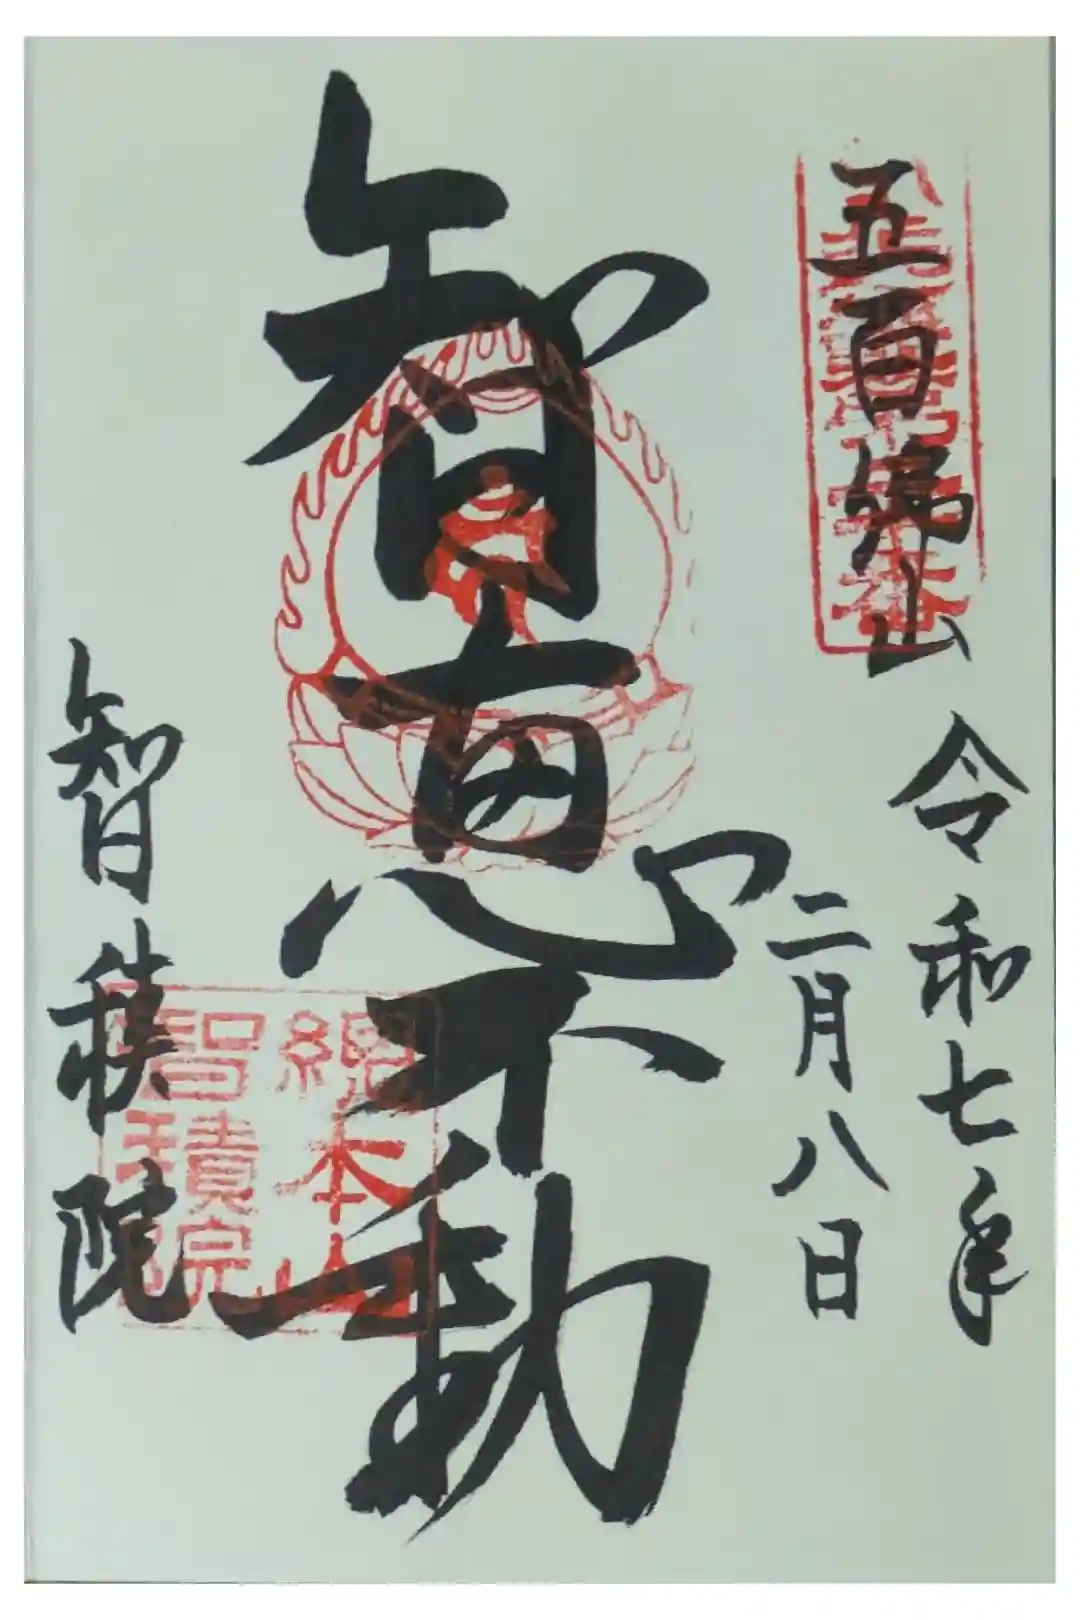 五百佛山
令和七年
二月八日
智恵不動
智積院
總本山
智積院